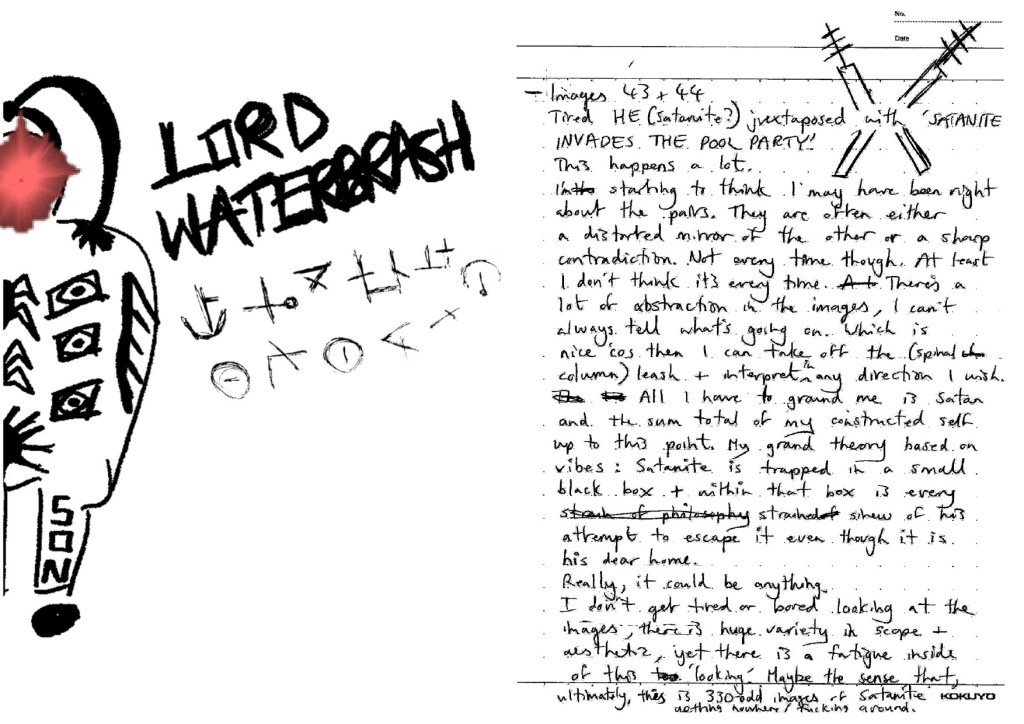 LORD
WATERBRASH
SON
No.
Date
- Images 43 + 44
Tired HE (Satanite?) juxtaposed with 'SATANITE
INVADES THE POOL PARTY!'
This happens a lot.
I'm starting to think I may have been right
about the pairs. They are often either
a distorted mirror of the other or a sharp
contradiction. Not every time though. At least
I don't think it's every time. There's a
lot of abstraction in the images, I can't
always tell what's going on. Which is
nice 'cos then I can take off the (spinal
column) leash + interpret in any direction I wish.
All I have to ground me is Satan
and the sum total of my constructed self
up to this point. My grand theory based on
vibes: Satanite is trapped in a small
black box + within that box is every
strain of philosophy strained sinew of his
attempt to escape it even though it is
his dear home.
Really, it could be anything.
I don't get tired or bored looking at the
images, there is huge variety in scope +
aesthetic, yet there is a fatigue inside
of this 'looking'. Maybe the sense that,
ultimately, this is 330 odd images of Satanite
getting nowhere / fucking around.
KOKUYO